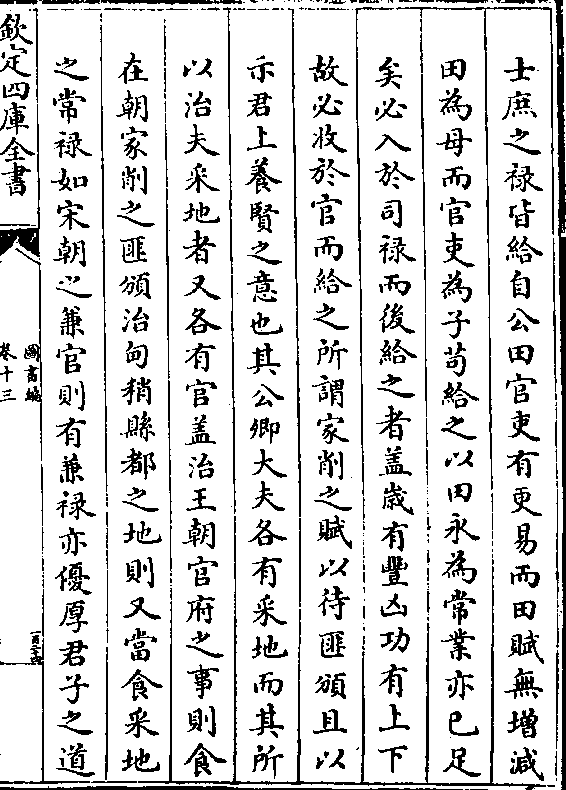 士庶之禄皆給自公田官吏有更易而田賦無增減
田為母而官吏為子苟給之以田永為常業亦已足
矣必入於司禄而後給之者盖歳有豐凶功有上下
故必收於官而給之所謂家削之賦以待匪頒且以
示君上養賢之意也其公卿大夫各有采地而其所
以治夫采地者又各有官盖治王朝官府之事則食
在朝家削之匪頒治甸稍縣都之地則又當食采地
之常禄如宋朝之兼官則有兼禄亦優厚君子之道
欽定四庫全書
圖書編
卷十三